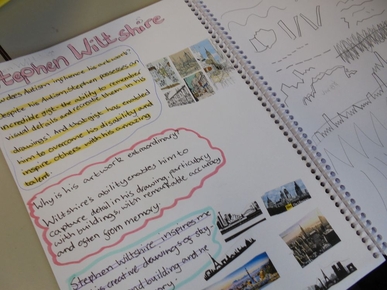 Stephen Wiltshire
Autism influence his artwork?
Despite his Autism, Stephen possesses an
incredible gift: the ability to remember
visual details and recreate them in his
drawings. And that gift has enabled
him to overcome his disability and
inspire others with his amazing
talent.
Why is his artwork extraordinary?
Wiltshire's ability enables him to
capture detail in his drawing, particulary
with buildings, with remarkable accuracy
and often from memory.
Stephen Wiltshire inspires me
creative drawings of sky
and building and he